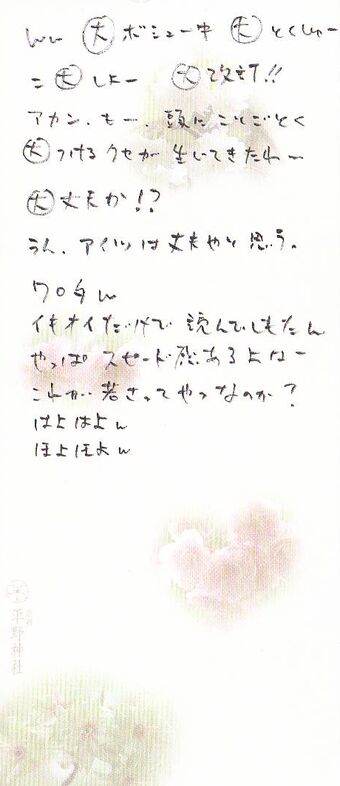 ww 大 ボシュー中 大 とくしゅー
こ 大 しよー 大 改訂!!
アカン、もー、頭に ことごとく
大 つけるクセが 生じてきたわー
大丈夫か!?
うん、アイツは丈夫やと思う。
ワロタw
イキオイだけで 読んでしもたん
やっぱ スピード感あるよなー
これが 若さってやつなのか?
はよはよw
ほよほよw
平野神社